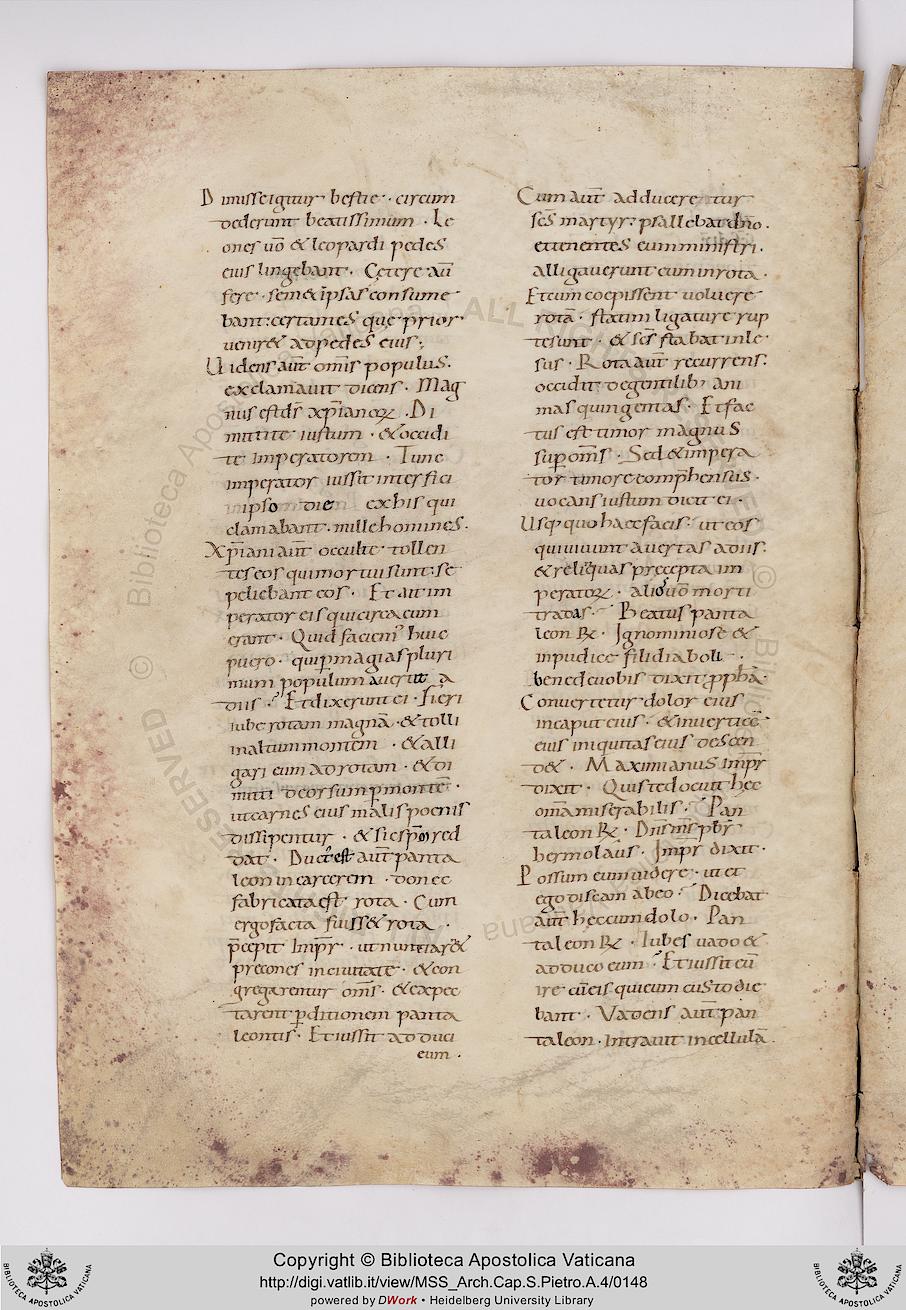 Dimisse igitur bestie · circum
dederunt beatissimum · Le
ones ũo & leopardi pedes
eius lingebant · Cetere aũ
fere · sem&ipsas consume
bant: certantes que prior
uenir& ad pedes eius ;
Uidens aũt om̅s populus.
exclamauit dicens · Mag
nus est d̅s xp̅ianoꝝ · Di
mittite iustum · & occidi
te imperatorem · Tunc
imperator iussit interfici
in ipso die exhis qui
clamabant · mille homines ·
Xp̅iani aũt occulte tollen
tes eos qui mortui sunt: se
peliebant eos · Et ait im
perator eis qui circa eum
erant · Quid faciem̕ huic
puero · qui p magias pluri
mum populum auertit a
diis · Et dixerunt ei · Fieri
iube rotam magnã · & tolli
in altum montem · & alli
gari eum ad rotam · & di
mitti deorsum p montẽ ·
ut carnes eius malis poenis
dissipentur · & sic spm̅ red
dat · Duct̕ est aũt panta
leon in carcerem · donec
fabricata est rota · Cum
ergo facta fuiss& rota ·
p̅cepit Imp̅r · ut nuntiar&
precones in ciuitate · & con
gregarentur om̅s · & expec
tarent p̱ditionem panta
leontis · Et iussit adduci
eum ·
Cum aũt adduceretur
sc̅s martyr: psallebat dn̅o ·
et uenientes eum ministri ·
alligauerunt eum in rota ·
Et cum coepissent uoluere
rotã · statim ligature rup
te sunt · & sc̅s stabat inle
sus · Rota aũt recurrens ·
occidit de gentilib; ani
mas quingentas · Et fac
tus est timor magnus
sup om̅s · Sed & impera
tor timore comp̅hensus ·
uocans iustum dicit ei ·
Usq; quo haec facis · ut eos
qui uiuunt auertas a diis ·
& reliquas precepta im
peratoꝝ · alios ũo morti
tradas · Beatus panta
leon ℞ · Ignominiose &
inpudice fili diaboli ·
bened e uobis dixit p̱phã ·
Conuertetur dolor eius
in caput eius · & in uerticẽ
eius iniquitas eius descen
d& · Maximianus imp̅r
dixit · Quis te docuit hec
om̅a miserabilis · Pan
taleon ℞ · Dn̅s m̅s pb̅r
hermolaus · Imp̅r dixit ·
Possum eum uidere · ut et
ego discam ab eo · Dicebat
aũt hec cum dolo · Pan
taleon ℞ · Iubes uado &
adduco eum · Et iussit eũ
ire cũ eis qui eum custodie
bant · Vadens aũt pan
taleon · intrauit in cellulã ·
Copyright © Biblioteca Apostolica Vaticana
http://digi.vatlib.it/view/MSS_Arch.Cap.S.Pietro.A.4/0148
powered by DWork • Heidelberg University Library